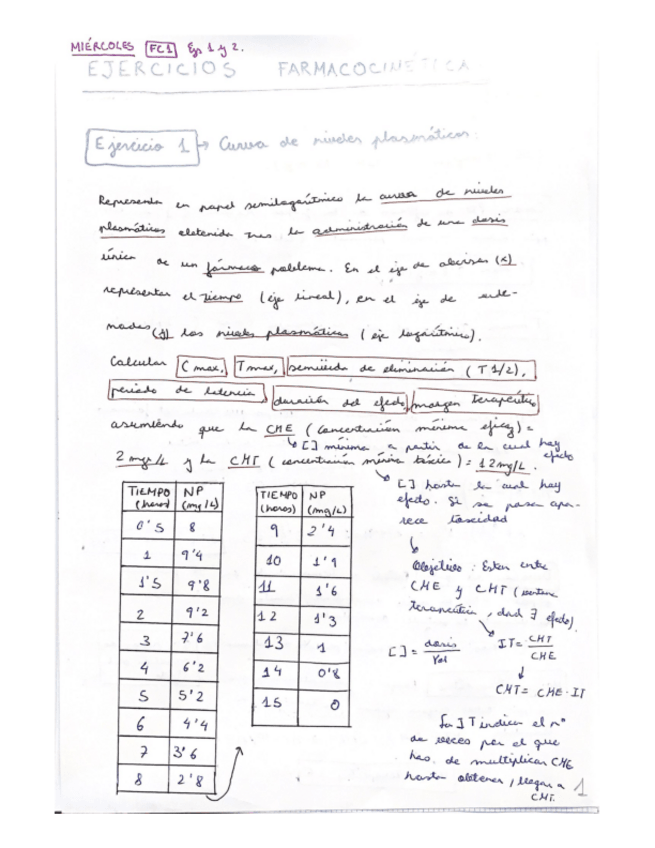 MIÉRCOLES FC1 Ejs 1 y 2.
EJERCICIOS FARMACOCINÉTICA
Ejercicio 1 → Curva de niveles plasmáticos:
Representa en papel semilogarítmico la curva de niveles
plasmáticos obtenida tras la administración de una dosis
única de un fármaco problema. En el eje de abcisas (x)
representar el tiempo (eje lineal), en el eje de orde-
nadas (y) los niveles plasmáticos (eje logarítmico).
Calcular Cmax, Tmax, semivida de eliminación (T 1/2),
periodo de latencia, duración del efecto, margen terapéutico
asumiendo que la CME (concentración mínima eficaz) =
↳ [] mínima a partir de la cual hay efecto
2 mg/L y la CMT (concentración mínima tóxica) = 12mg/L.
[] hasta la cual hay
efecto. Si se pasa apa-
rece toxicidad
Objetivo: Estar entre
CME y CMT (ventana
terapéutica, donde ∃ efecto).
[] = dosis / Vol
IT = CMT / CME
CMT = CME · IT
La IT indica el nº
de veces por el que
has de multiplicar CME
hasta obtener / llegar a
CMT.
TIEMPO (horas) NP (mg/L)
0'5 8
1 9'4
1'5 9'8
2 9'2
3 7'6
4 6'2
5 5'2
6 4'4
7 3'6
8 2'8
TIEMPO (horas) NP (mg/L)
9 2'4
10 1'9
11 1'6
12 1'3
13 1
14 0'8
15 0
1